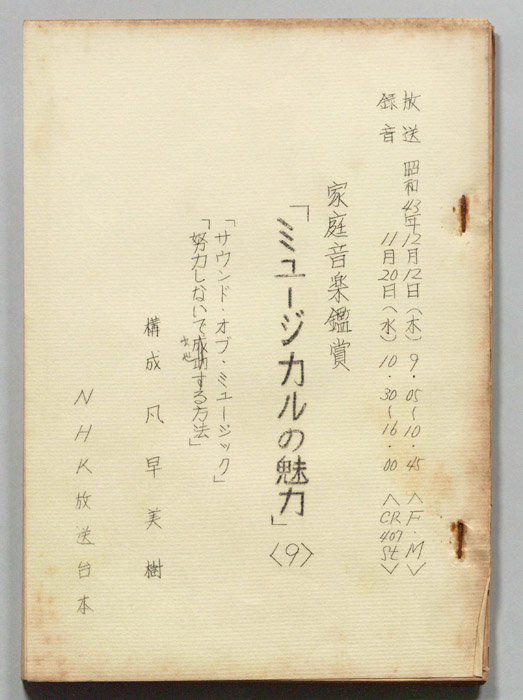 放送 昭和43年12月12日（木）9・05〜10・45〈F・M〉
録音 11月20日（水）10・30〜16・00〈CR407st〉
家庭音楽鑑賞
「ミュージカルの魅力」〈9〉
「サウンド・オブ・ミュージック」
「努力しないで成功する方法」
構成 凡早美樹
NHK放送台本